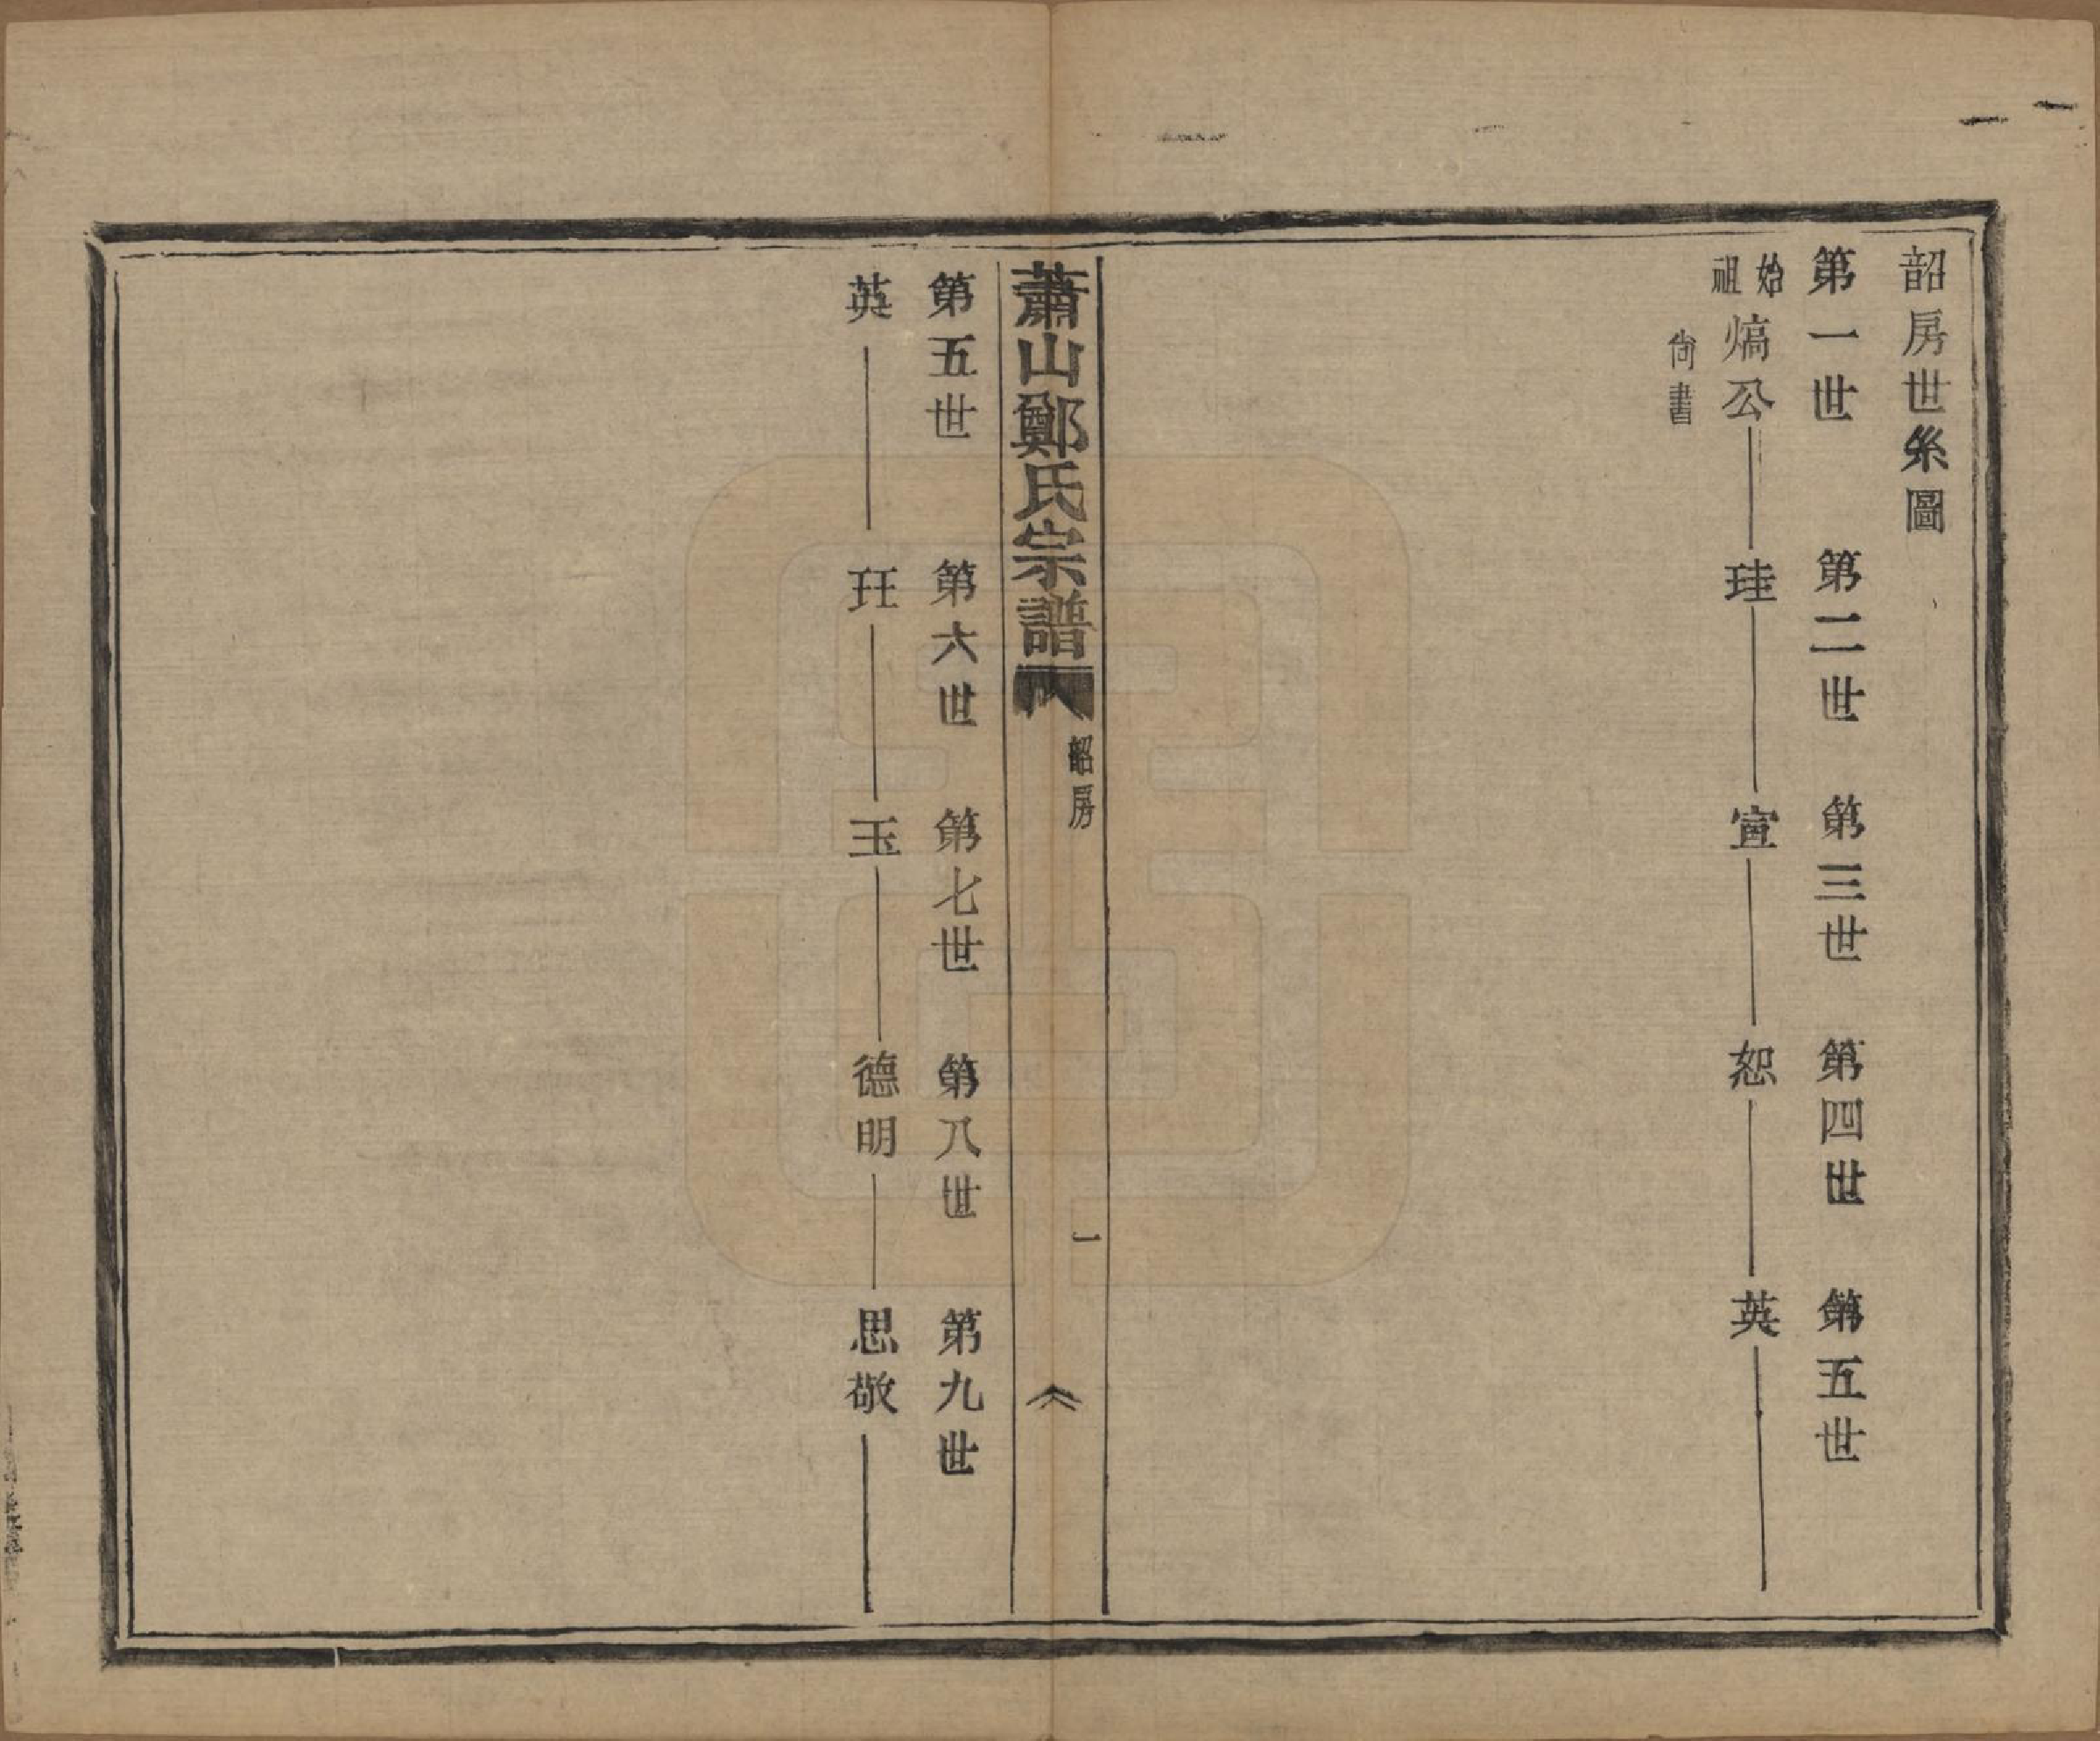 韶房世系圖
第一世 第二世 第三世 第四世 第五世
始祖熇公 珪 宣 恕 英
尙書
蕭山鄭氏宗譜 韶房 一
第五世 第六世 第七世 第八世 第九世
英 玨 玉 德明 思敬